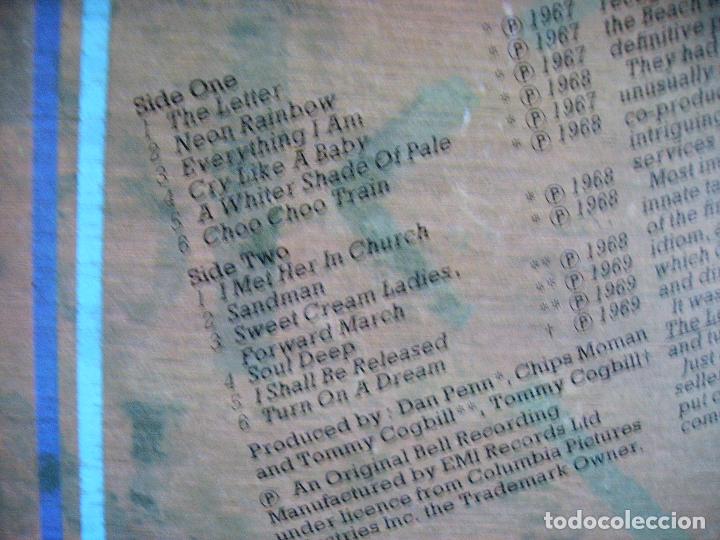 Side One
1 The Letter * ℗ 1967
2 Neon Rainbow * ℗ 1967
3 Everything I Am * ℗ 1967
4 Cry Like A Baby * ℗ 1968
5 A Whiter Shade Of Pale * ℗ 1967
6 Choo Choo Train * ℗ 1968
Side Two
1 I Met Her In Church * ℗ 1968
2 Sandman * ℗ 1968
3 Sweet Cream Ladies,
Forward March ** ℗ 1968
4 Soul Deep ** ℗ 1969
5 I Shall Be Released ** ℗ 1969
6 Turn On A Dream † ℗ 1969
Produced by: Dan Penn*, Chips Moman
and Tommy Cogbill**, Tommy Cogbill†
℗ An Original Bell Recording
Manufactured by EMI Records Ltd
under licence from Columbia Pictures
Inc. the Trademark Owner.
the Beach
definitive
They had
unusually
co-produc
intriguing
services
Most in
innate ta
of the fi
idiom,
which
and di
It was
The Le
and tu
Just
selle
put
com
todocoleccion
todocoleccion.net